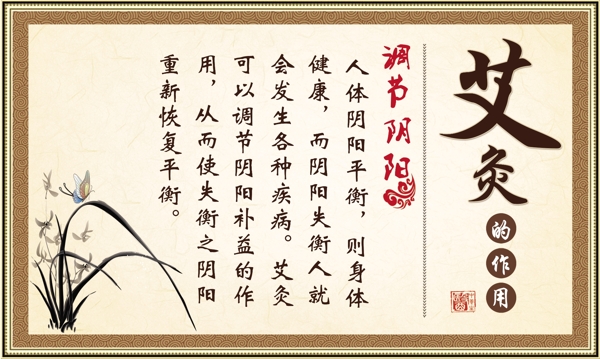 艾灸
的作用
调节阴阳
人体阴阳平衡，则身体
健康，而阴阳失衡人就
会发生各种疾病。艾灸
可以调节阴阳补益的作
用，从而使失衡之阴阳
重新恢复平衡。